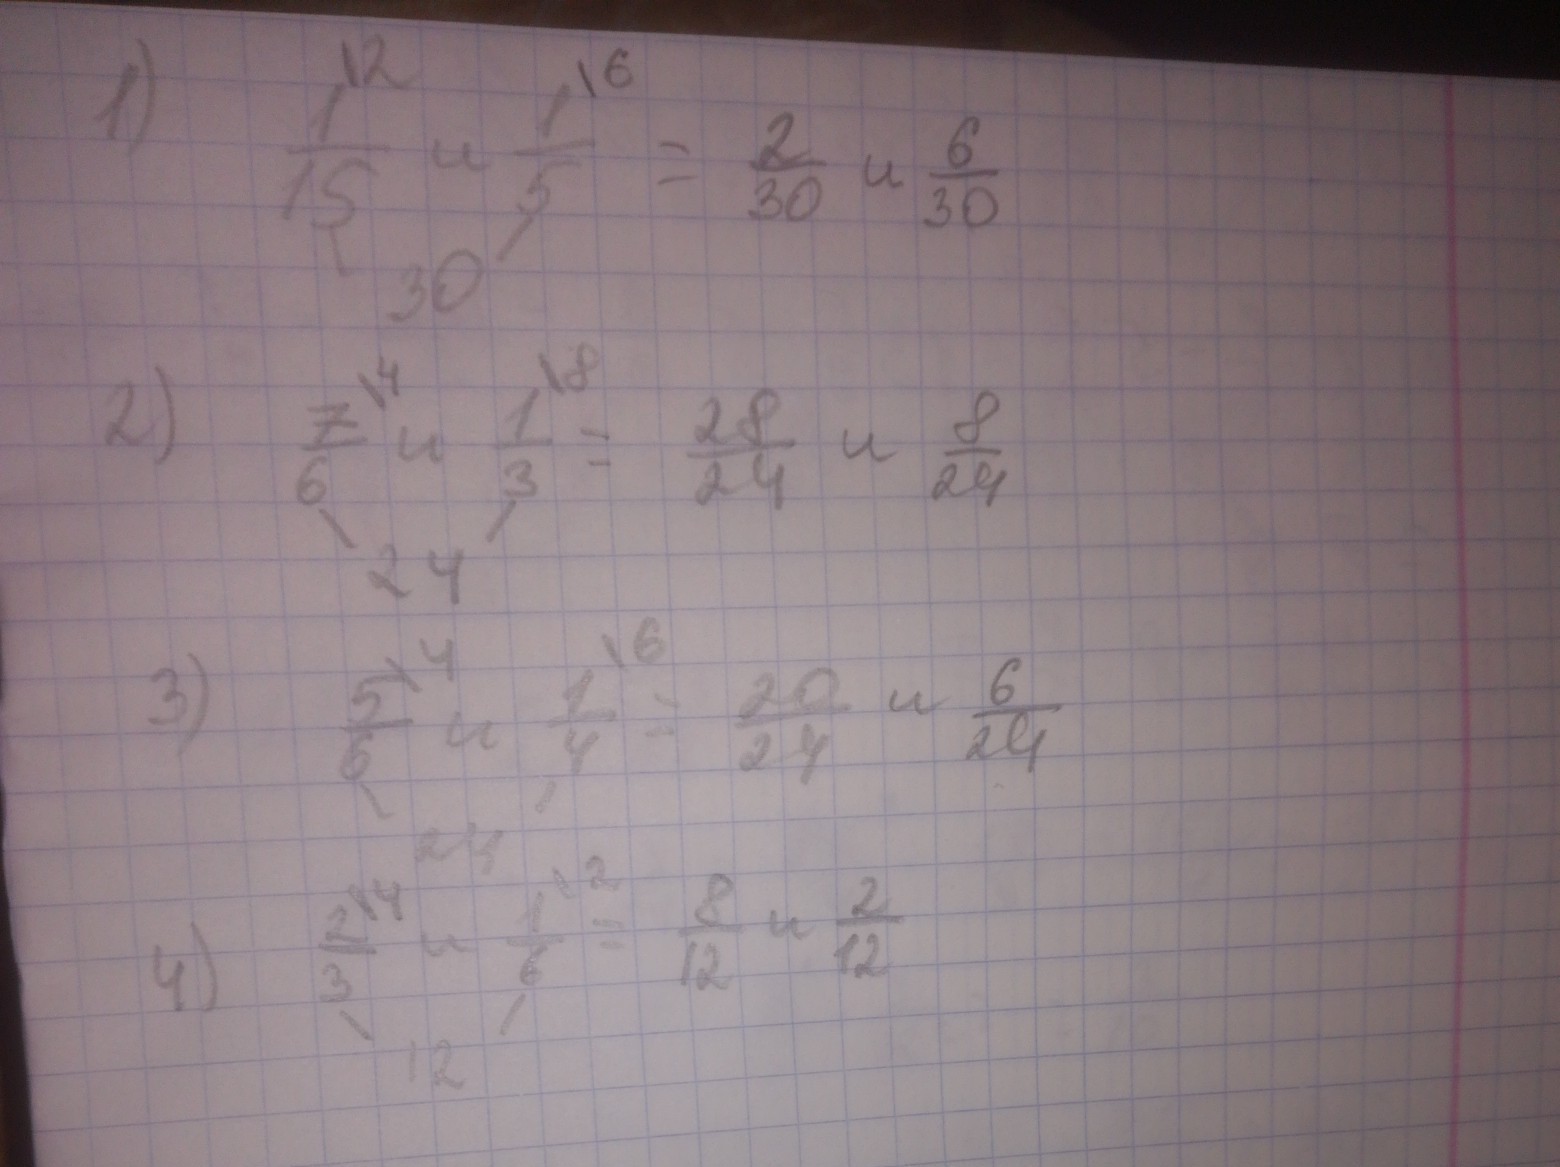 1) 1/15 \2 и 1/5 \6 = 2/30 и 6/30
30
2) 7/6 \4 и 1/3 \8 = 28/24 и 8/24
24
3) 5/6 \4 и 1/4 \6 = 20/24 и 6/24
24
4) 2/3 \4 и 1/6 \2 = 8/12 и 2/12
12